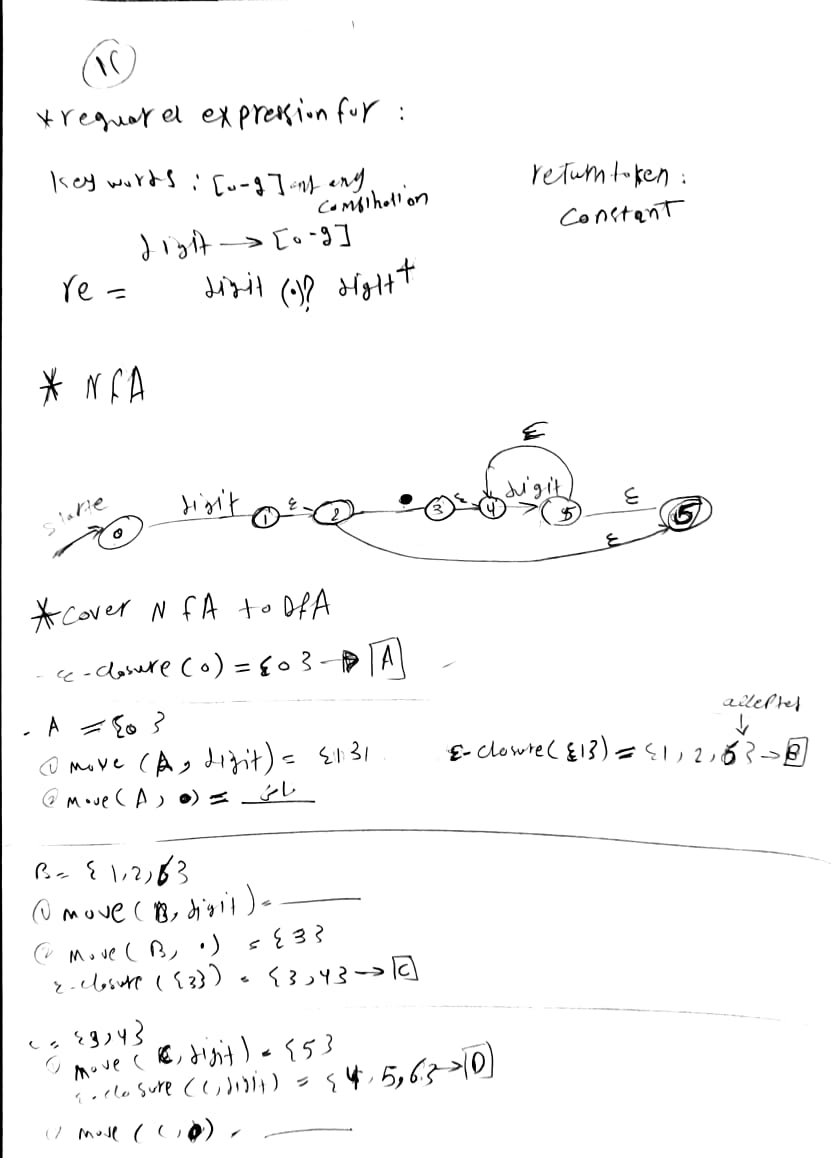 15
* reguar el expression for :
key words : [0-9] any
combination
return token :
constant
digit → [0-9]
re = digit (.)? digit+
* NFA
ε
state digit ε . ε digit ε
0 1 2 3 4 5 5
ε
* cover NFA to DFA
- ε-closure (0) = {0} → A
accepted
- A = {0}
① move (A, digit) = {1}
ε-closure({1}) = {1, 2, 6} → B
② move (A, .) =
B = {1,2,6}
① move (B, digit) =
② move (B, .) = {3}
ε-closure ({3}) = {3,4} → C
C = {3,4}
① move (C, digit) = {5}
ε-closure (C, digit) = {4, 5, 6} → D
move (C, .) =